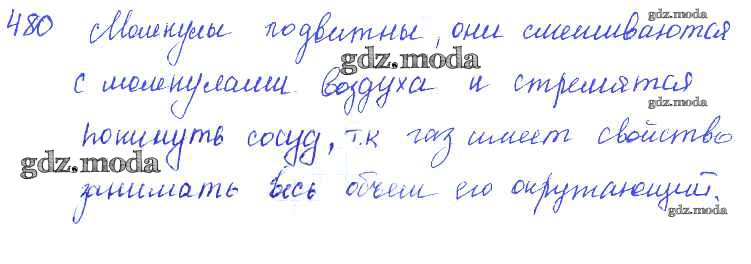 480 Молекулы подвижны, они смешиваются
gdz.moda
с молекулами воздуха и стремятся
gdz.moda
gdz.moda
покинуть сосуд, т.к газ имеет свойство
gdz.moda
занимать весь объем его окружающий.
gdz.moda